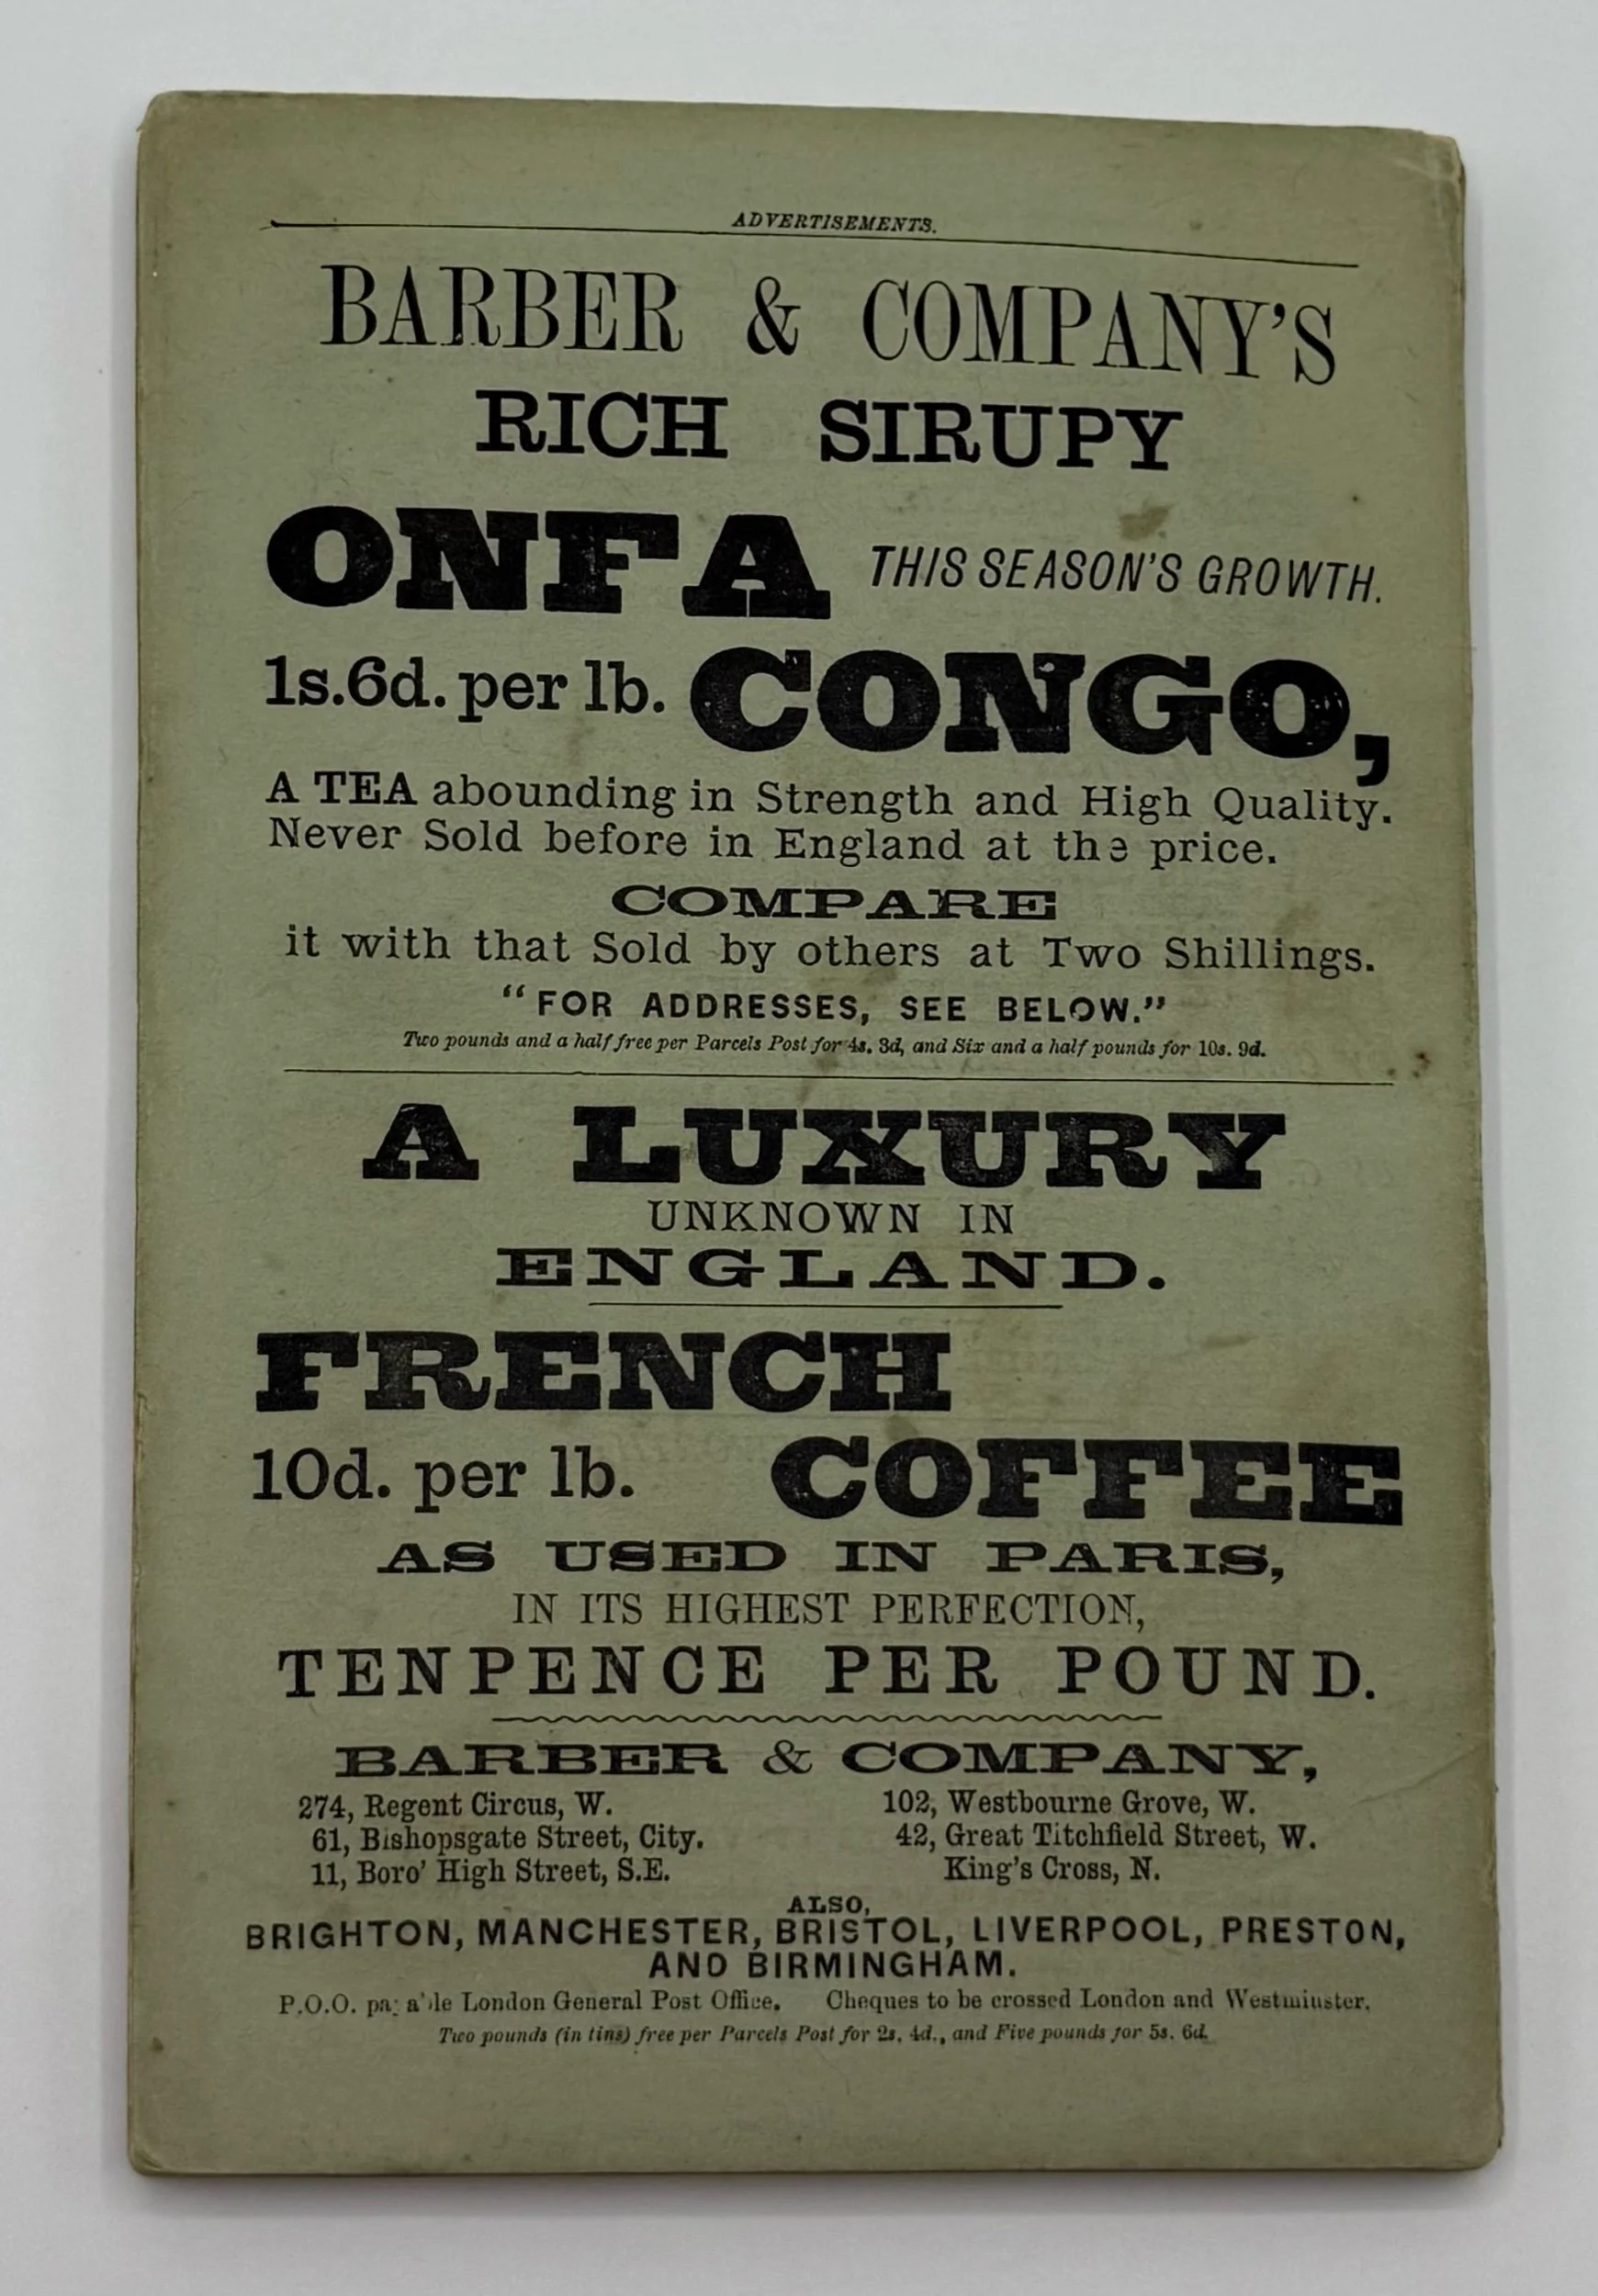 ADVERTISEMENTS.
BARBER & COMPANY'S
RICH SIRUPY
ONFA THIS SEASON'S GROWTH.
1s.6d. per lb. CONGO,
A TEA abounding in Strength and High Quality.
Never Sold before in England at the price.
COMPARE
it with that Sold by others at Two Shillings.
"FOR ADDRESSES, SEE BELOW."
Two pounds and a half free per Parcels Post for 4s. 3d, and Six and a half pounds for 10s. 9d.
A LUXURY
UNKNOWN IN
ENGLAND.
FRENCH
10d. per lb. COFFEE
AS USED IN PARIS,
IN ITS HIGHEST PERFECTION,
TENPENCE PER POUND.
BARBER & COMPANY,
274, Regent Circus, W. 102, Westbourne Grove, W.
61, Bishopsgate Street, City. 42, Great Titchfield Street, W.
11, Boro' High Street, S.E. King's Cross, N.
ALSO,
BRIGHTON, MANCHESTER, BRISTOL, LIVERPOOL, PRESTON,
AND BIRMINGHAM.
P.O.O. payable London General Post Office. Cheques to be crossed London and Westminster.
Two pounds (in tins) free per Parcels Post for 2s. 4d., and Five pounds for 5s. 6d.